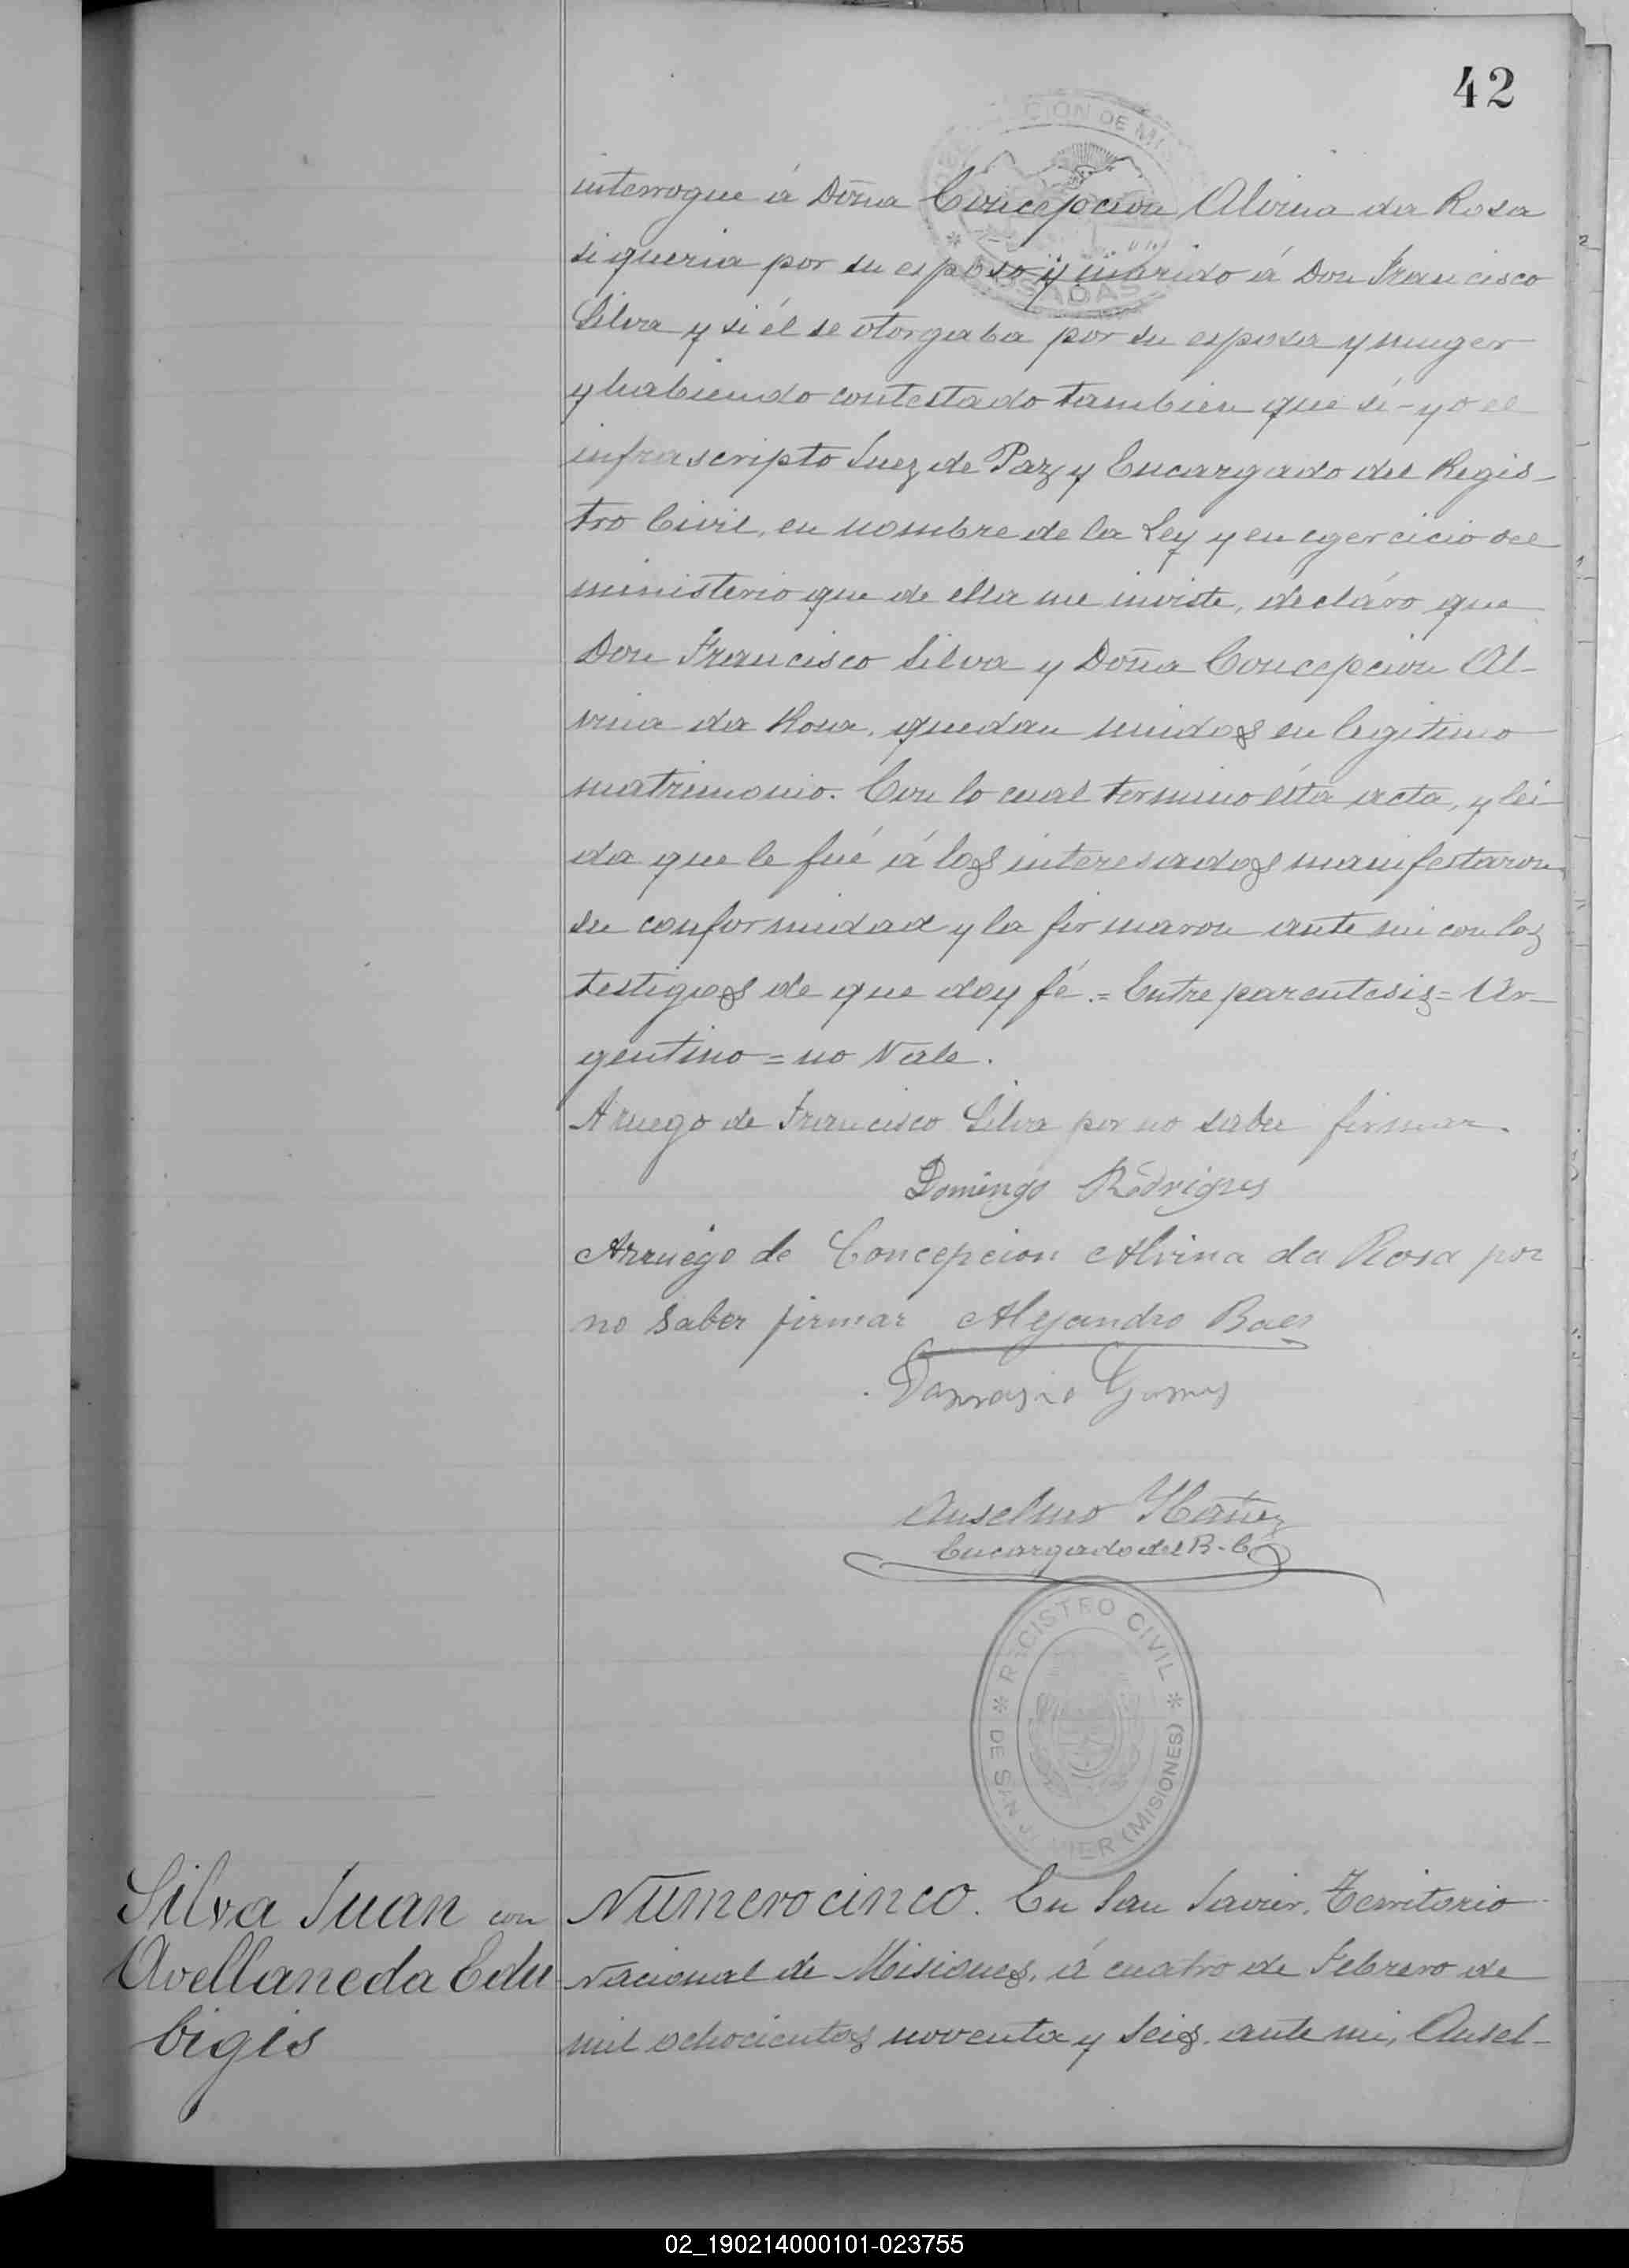 42
interrogue á Doña Concepcion Alvina da Rosa
si queria por su esposo y marido á Don Francisco
Silva y si él se otorgaba por su esposa y muger
y habiendo contestado tambien que sí - yo el
infrascripto Juez de Paz y Encargado del Regis-
tro Civil, en nombre de la Ley y en egercicio del
ministerio que de ella me inviste, decláro que
Don Francisco Silva y Doña Concepcion Al-
vina da Rosa, quedan unidos en legitimo
matrimonio. Con lo cual termino ésta acta, y lei-
da que le fué á los interesados manifestaron
su conformidad y la firmaron ante mi con los
testigos de que doy fé. = Entre parentesis = Ar-
gentino = no Vale.
A ruego de Francisco Silva por no saber firmar.
Domingo Rodrigues
Arruego de Concepcion Alvina da Rosa por
no saber firmar Alejandro Baes
Gomes
Anselmo Ybañez
Encargado del R. C.
REGISTRO CIVIL
DE SAN JAVIER (MISIONES)
Silva Juan con
Avellaneda Edu
bigis
Numero cinco. En San Javier, Territorio
Nacional de Misiones, á cuatro de Febrero de
mil ochocientos noventa y seis, ante mi, Ansel-
02_190214000101-023755